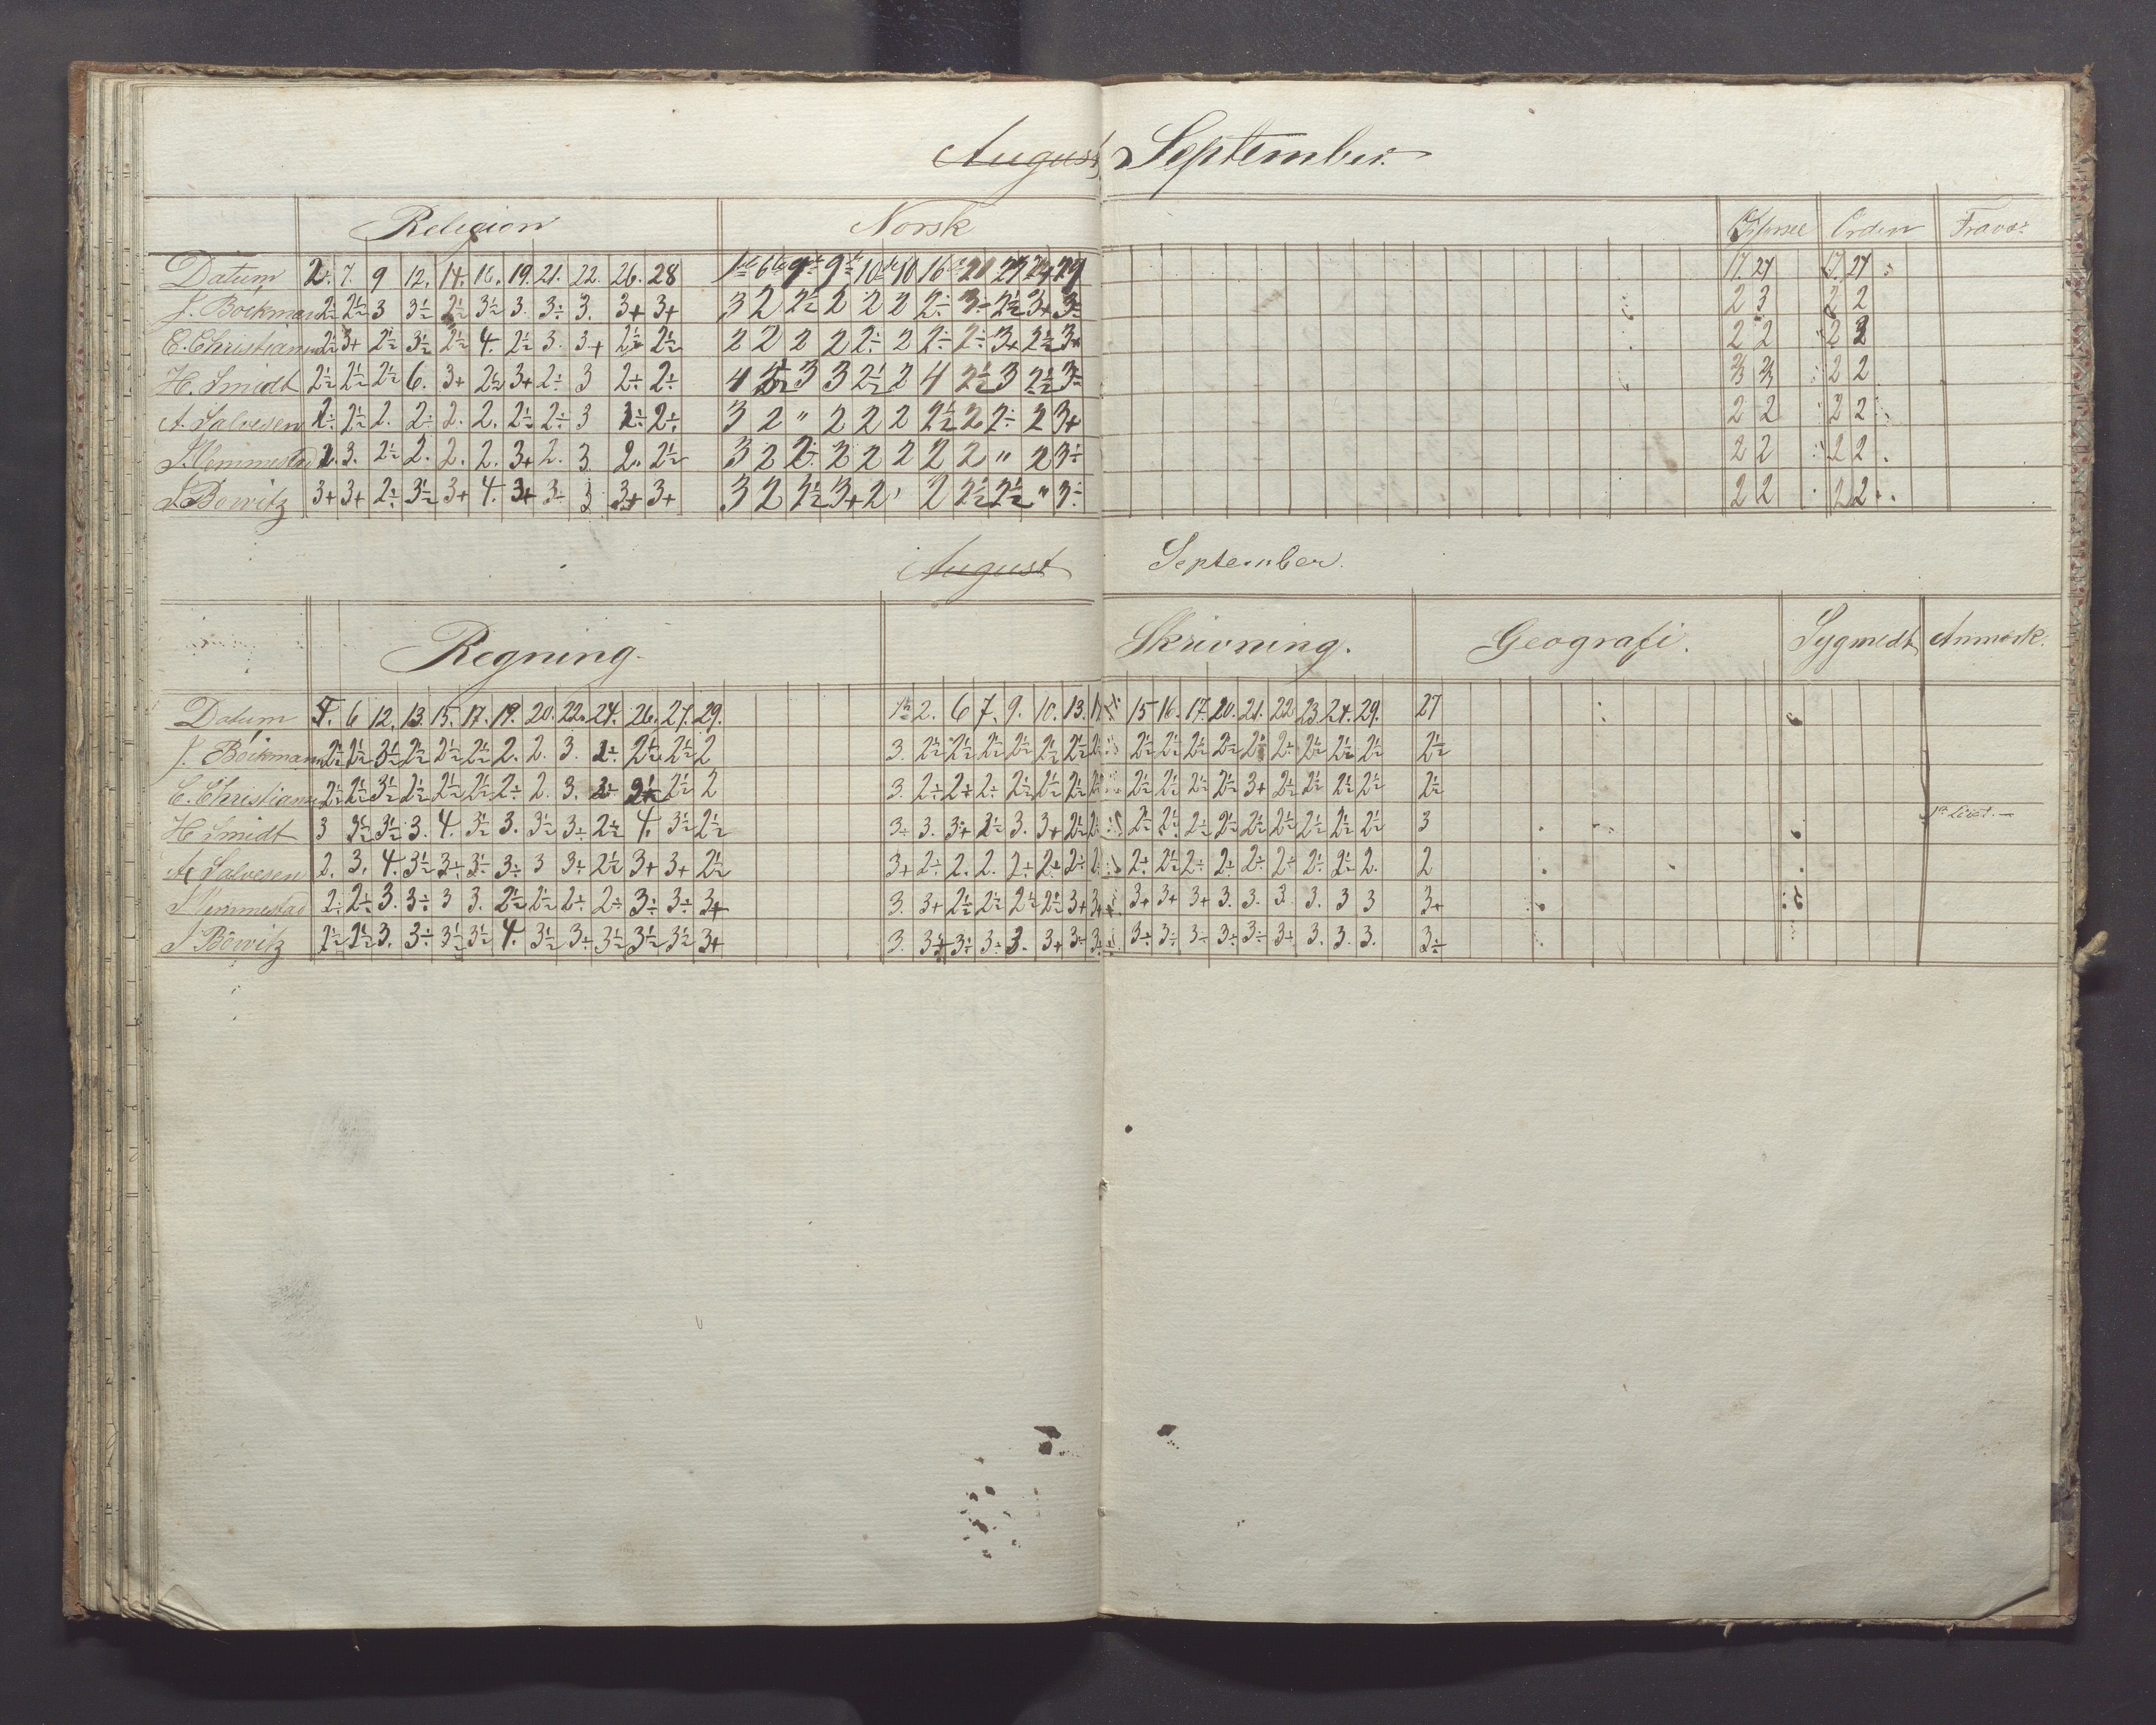 August, September.
Religion Norsk Opførsel Orden Fravær
Datum 2. 7. 9 12. 14. 16. 19. 21. 22. 26. 28 6 9 9 10 10 16 20 29 17. 27 17. 27
J. Bockman 2÷ 2½ 3 3½ 2½ 3½ 3. 3÷ 3. 3+ 3+ 3 2 2½ 2 2 2 2÷ 3÷ 2½ 3+ 3÷ 2 3 2 2
E. Christiansen 2÷ 3+ 2½ 3½ 2½ 4. 2½ 3. 3+ 2½ 2½ 2 2 2 2 2÷ 2 2÷ 2÷ 3+ 2½ 3+ 2 2 2 3
H. Smidt 2½ 2½ 2½ 6. 3+ 2½ 3+ 2÷ 3 2÷ 2÷ 4 3 3 2½ 2 4 2½ 3 2½ 3÷ 3 3 2 2
A. Salvesen 2÷ 2½ 2. 2÷ 2. 2. 2½ 2÷ 3 2÷ 2÷ 3 2 " 2 2 2 2½ 2 2÷ 2 3+ 2 2 2 2
J. Vemmestad 2. 3. 2½ 2. 2. 2. 3+ 2. 3. 2. 2½ 3 2 2÷ 2 2 2 2 2 " 2 3÷ 2 2 2 2
S. Bowitz 3+ 3+ 2÷ 3½ 3+ 4. 3+ 3÷ 3 3+ 3+ 3 2 2½ 3+ 2 ' 2 2½ 2½ " 3÷ 2 2 2 2
August September.
Regning. Skrivning. Geografi. Sygmedt Anmærk.
Datum 5. 6 12. 13. 15. 17. 19. 20. 22. 24. 26. 27. 29. 2. 6 7. 9. 10. 13. 15 16. 17. 20. 21. 22 23. 24. 29. 27
J. Böckmann 2½ 2½ 3½ 2½ 2½ 2½ 2. 2. 3. 2÷ 2½ 2½ 2 3. 2½ 2½ 2½ 2½ 2½ 2½ 2½ 2½ 2½ 2½ 2½ 2÷ 2½ 2½ 2½ 2½
C. Christiansen 2½ 2½ 3½ 2½ 2½ 2½ 2÷ 2. 3. 2½ 2 3. 2÷ 2÷ 2÷ 2½ 2½ 2½ 2½ 2½ 2½ 2½ 3+ 2½ 2½ 2½ 2½ 2½
H. Smidt 3 3½ 3½ 3. 4. 3½ 3. 3½ 3÷ 2½ 4. 3½ 2½ 3÷ 3. 3+ 2½ 3. 3+ 2½ 2½ 2½ 2½ 2½ 2½ 2½ 2½ 2½ 2½ 3
A. Salvesen 2. 3. 4. 3½ 3÷ 3÷ 3÷ 3 3÷ 2½ 3+ 3+ 2½ 3+ 2÷ 2. 2. 2÷ 2÷ 2÷ 2÷ 2½ 2÷ 2÷ 2÷ 2÷ 2÷ 2½ 2. 2
J. Vemmestad 2÷ 2÷ 3. 3÷ 3 3. 2½ 2½ 2÷ 2÷ 3÷ 3÷ 3+ 3. 3+ 2½ 2½ 2½ 2½ 3+ 3+ 3+ 3+ 3+ 3. 3. 3. 3. 3 3 3+
S. Böwitz 2½ 2½ 3. 3÷ 3½ 3½ 4. 3½ 3÷ 3½ 3½ 3½ 3+ 3. 3+ 3÷ 3÷ 3. 3+ 3÷ 3÷ 3÷ 3÷ 3÷ 3÷ 3÷ 3÷ 3. 3. 3. 3÷